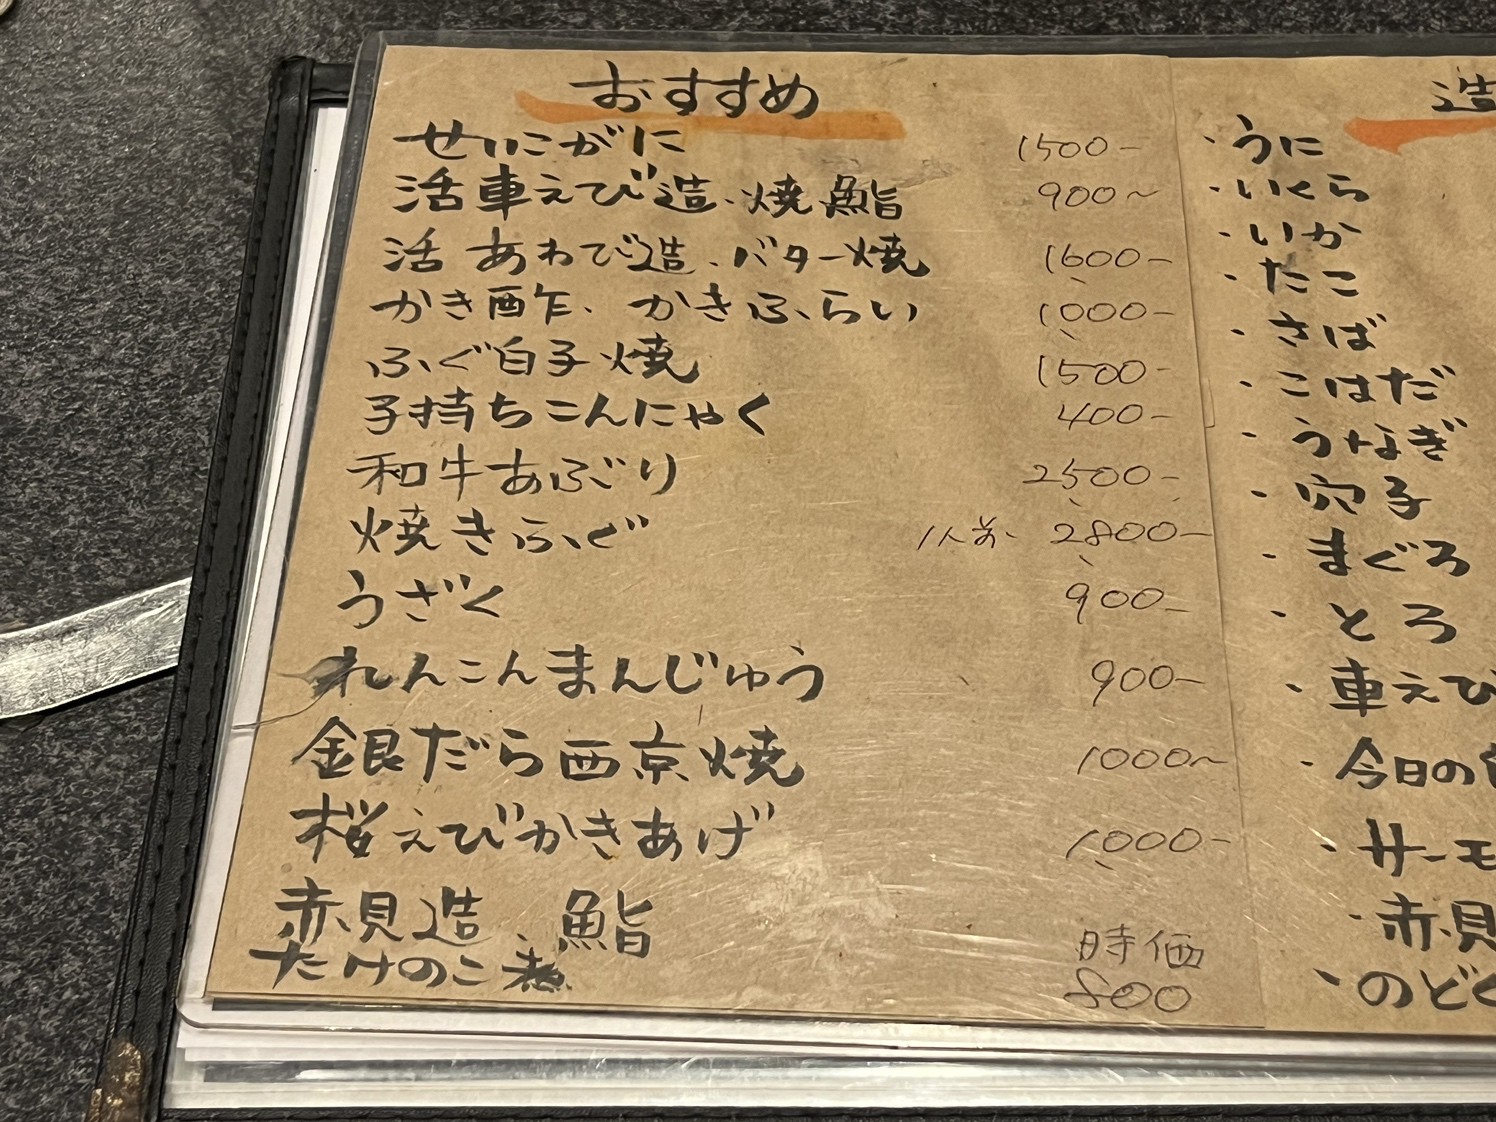 おすすめ
せいこがに 1500-
活車えび造、焼、鮨 900~
活あわび造、バター焼 1600-
かき酢、かきふらい 1000-
ふぐ白子焼 1500-
子持ちこんにゃく 400-
和牛あぶり 2500-
焼きふぐ 1人前、2800-
うざく 900-
れんこんまんじゅう 900-
銀だら西京焼 1000~
桜えびかきあげ 1000-
赤貝造、鮨 時価
たけのこ煮 800
造
・うに
・いくら
・いか
・たこ
・さば
・こはだ
・うなぎ
・穴子
・まぐろ
・とろ
・車えび
・今日の
・サーモ
・赤貝
・のどく